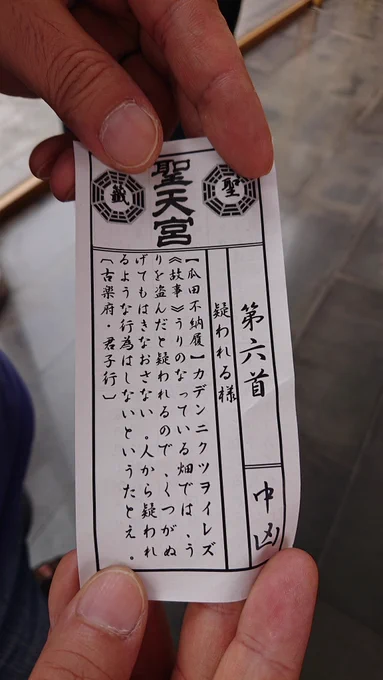 聖
聖天宮
籤
第六首
中凶
疑われる様
【瓜田不納履】カデンニクツヲイレズ
《故事》うりのなっている畑では、う
りを盗んだと疑われるので、くつがぬ
げてもはきなおさない。人から疑われ
るような行為はしないというたとえ。
〔古楽府・君子行〕